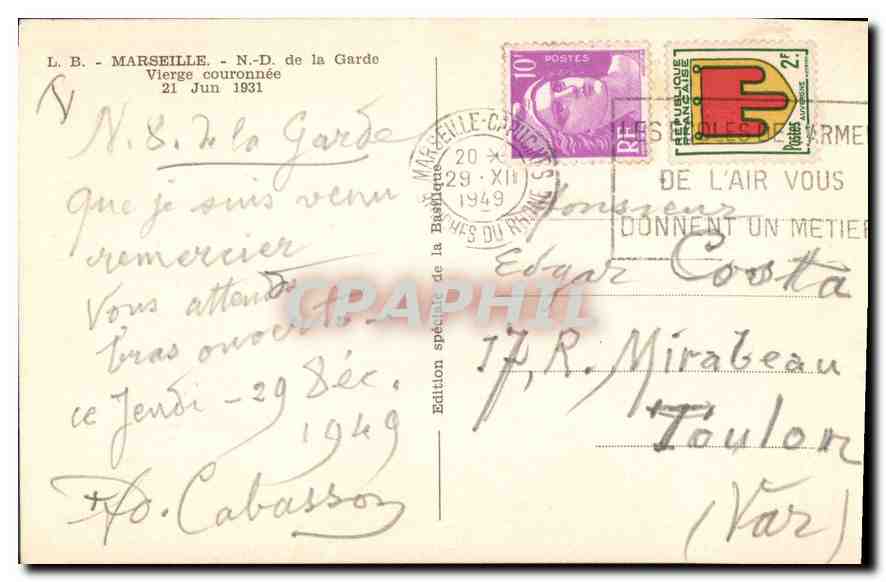 L. B. - MARSEILLE. - N.-D. de la Garde
Vierge couronnée
21 Jun 1931
N. D. de la Garde
que je suis venu
remercier
Vous attend
bras ouverts -
ce Jeudi - 29 Déc.
1949
Cabasson
Edition spéciale de la Basilique
10F
POSTES
RF
RÉPUBLIQUE
FRANÇAISE
2F
Postes
AUVERGNE
MARSEILLE-CAPUCINES
20
29 · XII
1949
BCHES DU RHÔNE
LES ECOLES DE L'ARME
DE L'AIR VOUS
DONNENT UN METIER
Monsieur
Edgar Costa
17, R. Mirabeau
Toulon
(Var)
CPAPHIL